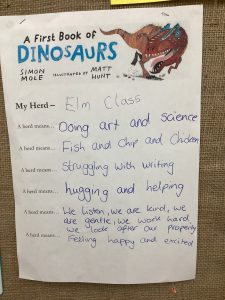 A First Book of
DINOSAURS
SIMON MOLE
ILLUSTRATED BY
MATT HUNT
My Herd – Elm Class
A herd means... Doing art and science
A herd means... Fish and chip and chicken
A herd means... Struggling with writing
A herd means... hugging and helping
A herd means... We listen, we are kind, we
are gentle, we work hard,
we look after our property
A herd means... Feeling happy and excited